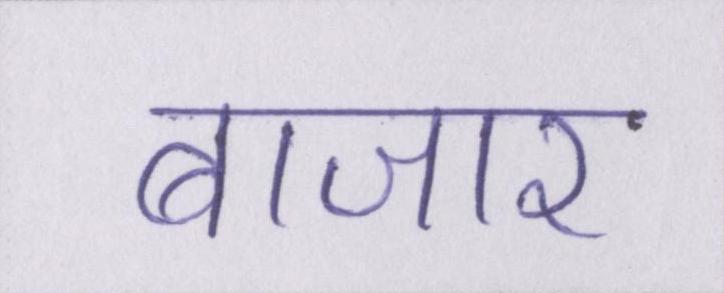 बाजार